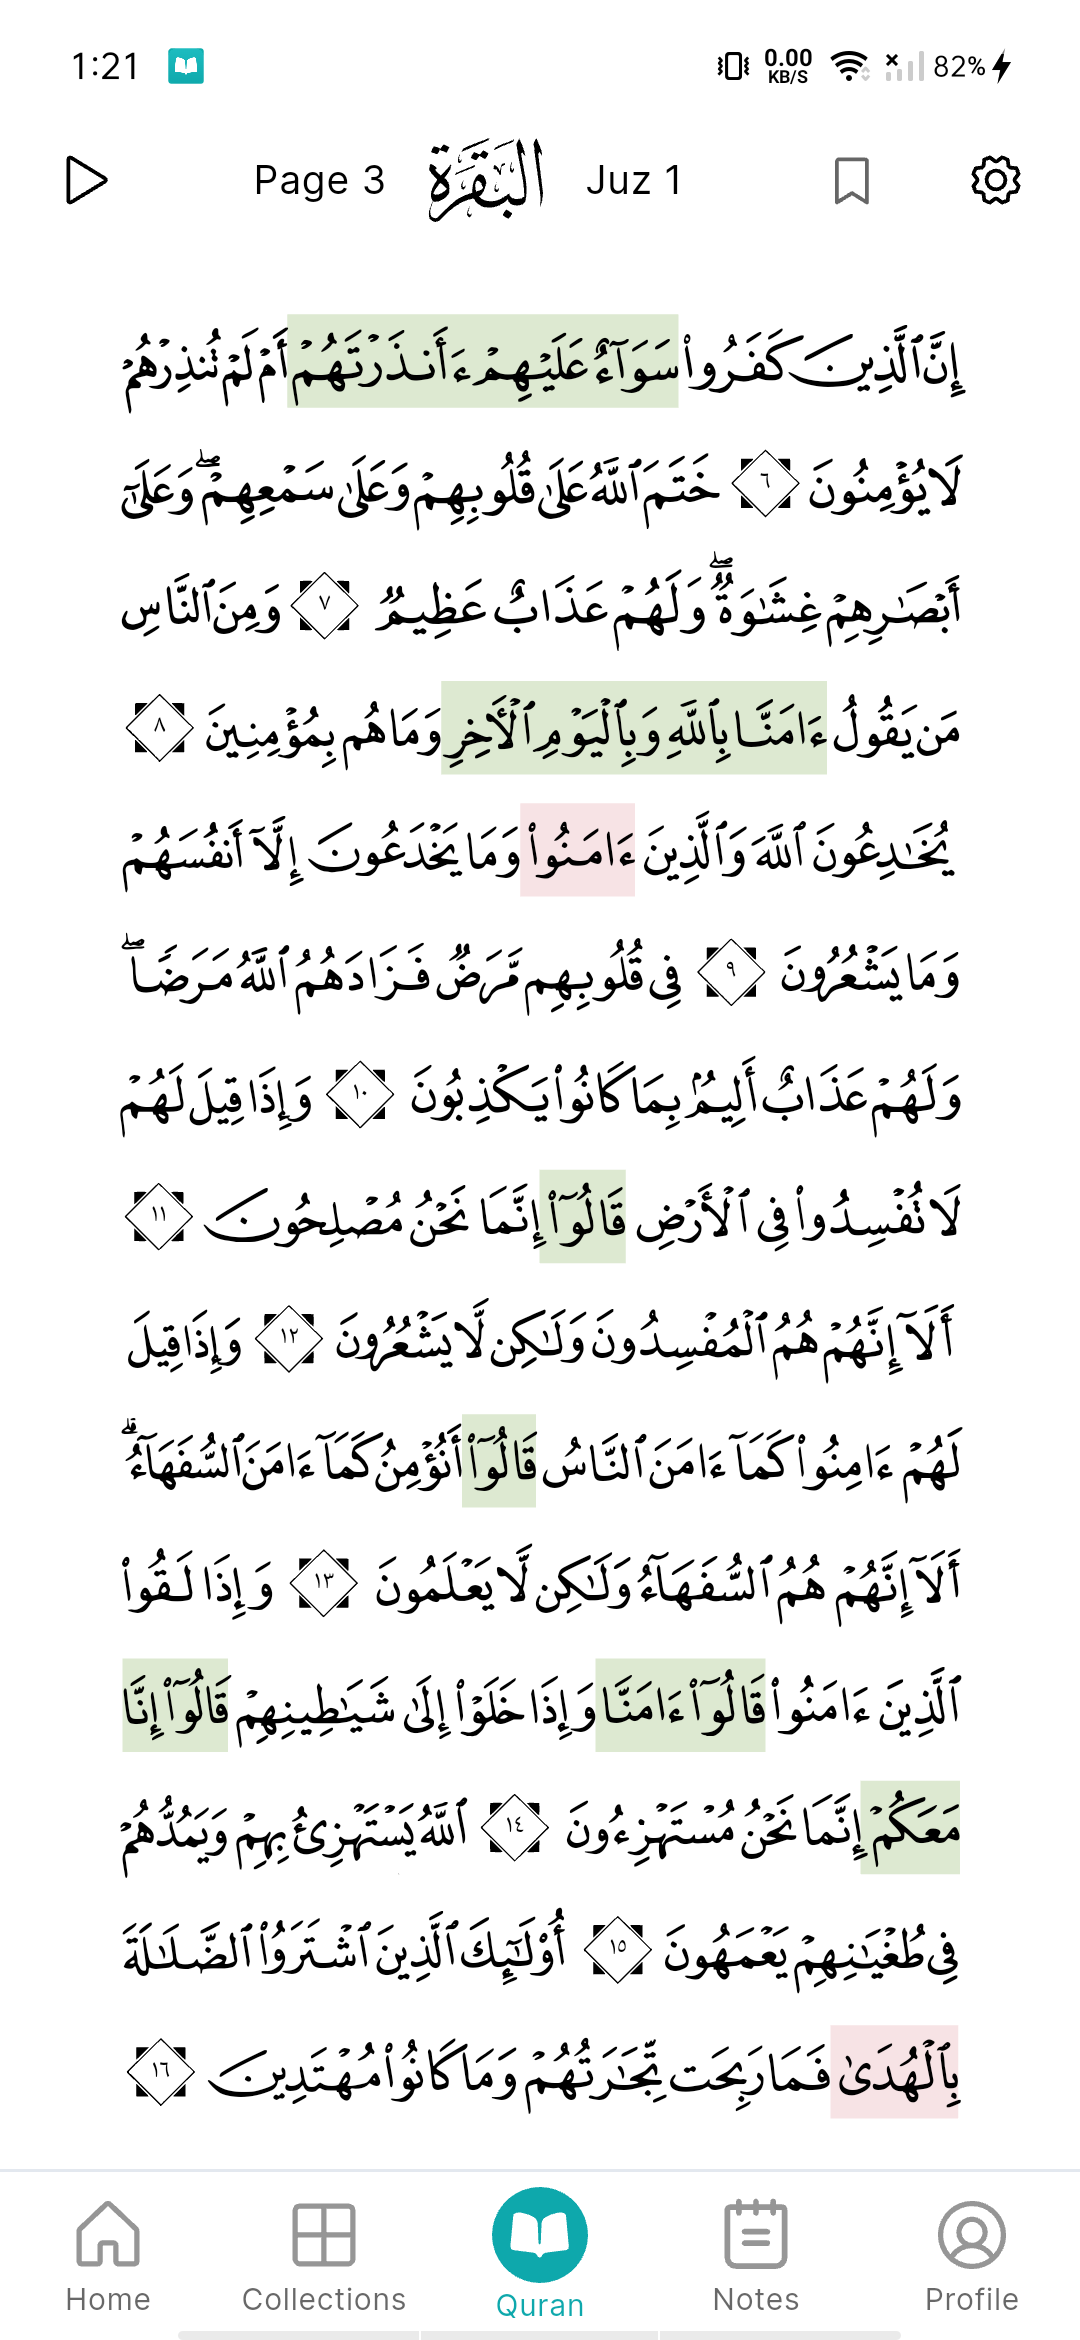 1:21 0.00 KB/S 82%
Page 3 البَقَرَة Juz 1
إِنَّ ٱلَّذِينَ كَفَرُوا۟ سَوَآءٌ عَلَيْهِمْ ءَأَنذَرْتَهُمْ أَمْ لَمْ تُنذِرْهُمْ
لَا يُؤْمِنُونَ ٦ خَتَمَ ٱللَّهُ عَلَىٰ قُلُوبِهِمْ وَعَلَىٰ سَمْعِهِمْ ۖ وَعَلَىٰٓ
أَبْصَـٰرِهِمْ غِشَـٰوَةٌ ۖ وَلَهُمْ عَذَابٌ عَظِيمٌ ٧ وَمِنَ ٱلنَّاسِ
مَن يَقُولُ ءَامَنَّا بِٱللَّهِ وَبِٱلْيَوْمِ ٱلْـَٔاخِرِ وَمَا هُم بِمُؤْمِنِينَ ٨
يُخَـٰدِعُونَ ٱللَّهَ وَٱلَّذِينَ ءَامَنُوا۟ وَمَا يَخْدَعُونَ إِلَّآ أَنفُسَهُمْ
وَمَا يَشْعُرُونَ ٩ فِى قُلُوبِهِم مَّرَضٌ فَزَادَهُمُ ٱللَّهُ مَرَضًا ۖ
وَلَهُمْ عَذَابٌ أَلِيمٌۢ بِمَا كَانُوا۟ يَكْذِبُونَ ١٠ وَإِذَا قِيلَ لَهُمْ
لَا تُفْسِدُوا۟ فِى ٱلْأَرْضِ قَالُوٓا۟ إِنَّمَا نَحْنُ مُصْلِحُونَ ١١
أَلَآ إِنَّهُمْ هُمُ ٱلْمُفْسِدُونَ وَلَـٰكِن لَّا يَشْعُرُونَ ١٢ وَإِذَا قِيلَ
لَهُمْ ءَامِنُوا۟ كَمَآ ءَامَنَ ٱلنَّاسُ قَالُوٓا۟ أَنُؤْمِنُ كَمَآ ءَامَنَ ٱلسُّفَهَآءُ ۗ
أَلَآ إِنَّهُمْ هُمُ ٱلسُّفَهَآءُ وَلَـٰكِن لَّا يَعْلَمُونَ ١٣ وَإِذَا لَقُوا۟
ٱلَّذِينَ ءَامَنُوا۟ قَالُوٓا۟ ءَامَنَّا وَإِذَا خَلَوْا۟ إِلَىٰ شَيَـٰطِينِهِمْ قَالُوٓا۟ إِنَّا
مَعَكُمْ إِنَّمَا نَحْنُ مُسْتَهْزِءُونَ ١٤ ٱللَّهُ يَسْتَهْزِئُ بِهِمْ وَيَمُدُّهُمْ
فِى طُغْيَـٰنِهِمْ يَعْمَهُونَ ١٥ أُو۟لَـٰٓئِكَ ٱلَّذِينَ ٱشْتَرَوُا۟ ٱلضَّلَـٰلَةَ
بِٱلْهُدَىٰ فَمَا رَبِحَت تِّجَـٰرَتُهُمْ وَمَا كَانُوا۟ مُهْتَدِينَ ١٦
Home Collections Quran Notes Profile